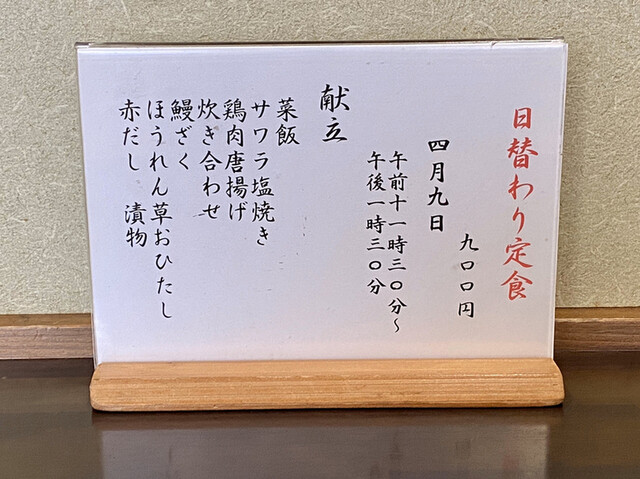 日替わり定食
九〇〇円
四月九日
午前十一時三〇分～
午後一時三〇分
献立
菜飯
サワラ塩焼き
鶏肉唐揚げ
炊き合わせ
鰻ざく
ほうれん草おひたし
赤だし 漬物